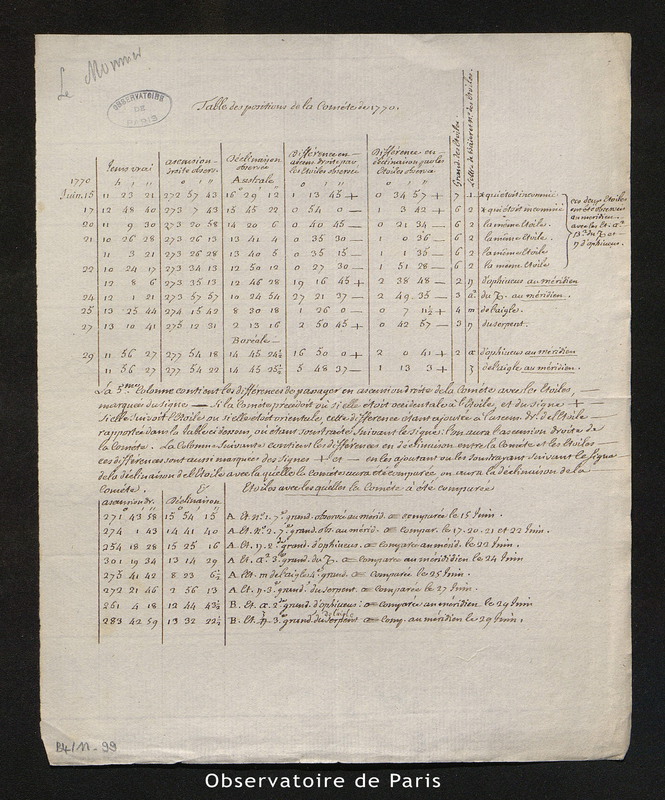 Le Monnier
OBSERVATOIRE
DE
PARIS
Table des positions de la Comète de 1770.
Grand. des Etoiles
1770
Tems vrai
ascension droite observ.
déclinaison observée
Différence en ascens. droite par les étoiles observé
Différence en déclinaison par les Etoiles observé
Australe
Juin. 15 11 23 21 272 57 43 16 29 12 1 13 45 + 0 34 57 + 7 1 * qui etoit inconnüe
17 12 48 40 273 7 43 15 45 22 0 54 0 — 1 3 42 + 6 2 * qui étoit inconnüe
20 11 9 30 273 20 58 14 20 6 0 40 45 — 0 21 34 — 6 2 la même Etoile
21 10 26 28 273 26 13 13 41 4 0 35 30 1 0 36 — 6 2 la même Etoile.
11 3 21 273 26 28 13 40 5 0 35 15 — 1 1 35 — 6 2 la même Etoile
22 10 24 17 273 34 13 12 50 12 0 27 30 — 1 51 28 — 6 2 la même Etoile
12 8 6 273 35 13 12 46 28 19 16 45 + 2 38 48 — 2 η d'ophiucus au méridien
24 12 1 21 273 57 57 10 24 54 27 21 37 — 2 49 35 — 3 au méridien.
25 13 25 44 274 15 42 8 30 18 1 26 0 — 0 7 11½ + 4 m de l'aigle.
27 13 10 41 275 12 31 2 13 16 2 50 45 + 0 42 57 — 3 η du serpent.
Boréale —
29 11 56 27 277 54 18 14 45 24½ 16 50 0 + 2 0 41 + 2 α d'ophiucus au méridien
11 56 27 277 54 22 14 45 25½ 5 48 37 — 1 13 3 + ζ de l'aigle au méridien
ces deux Etoiles
au méridien
La 5me. Colonne contient les différences de passage en ascension droite de la Comète avec les Etoiles, —
marquées du signe — Si la Comète précedoit ou si elle étoit occidentale à l'étoile, et du signe +
Si elle suivoit l'Etoile ou si elle étoit orientale, cette différence étant ajoutée à l'ascen. dr. de l'Etoile
rapportée dans la table ci dessous, ou étant soustraite, suivant le signe: l'on aura l'ascension droite de
la Comète. La Colonne Suivante contient les différences en déclinaison entre la Comète et les Etoiles —
ces différences sont aussi marquées des signes + et — en les ajoutant ou les soustrayant suivant le signe
de la déclinaison de l'Etoile avec la quelle la Comète aura été comparée on aura la déclinaison de la
Comète. & Etoiles avec les quelles la Comète a été comparée
ascension dr. déclinaison
271 43 58 15 54 15 A. Et. n°. 1. 7e. grand. observée au mérid. comparée le 15 Juin.
274 1 43 14 41 40 A. Et. n°. 2. 7e. grand. obs. au mérid. compar. le 17. 20. 21 et 22 Juin.
254 18 28 15 25 16 A. Et. η. 2e. grand. d'ophiucus. comparée au mérid. le 22 Juin.
301 19 34 13 14 29 A. Et. 3e. grand. du comparée au méridien le 24 Juin
275 41 42 8 23 6½ A. Et. m de l'aigle 4e. grand. comparée. le 25 Juin.
272 21 46 2 56 13 A. Et. η. 3e. grand. du serpent. comparée le 27 Juin.
261 4 18 12 44 43½ B. Et. α. 2e. grand. d'ophiucus: comparée au méridien. le 29 Juin
de l'aigle
283 42 59 13 32 22½ B. Et. 3e. grand. du serpent comp. au méridien le 29 Juin.
B4/11-99
Observatoire de Paris